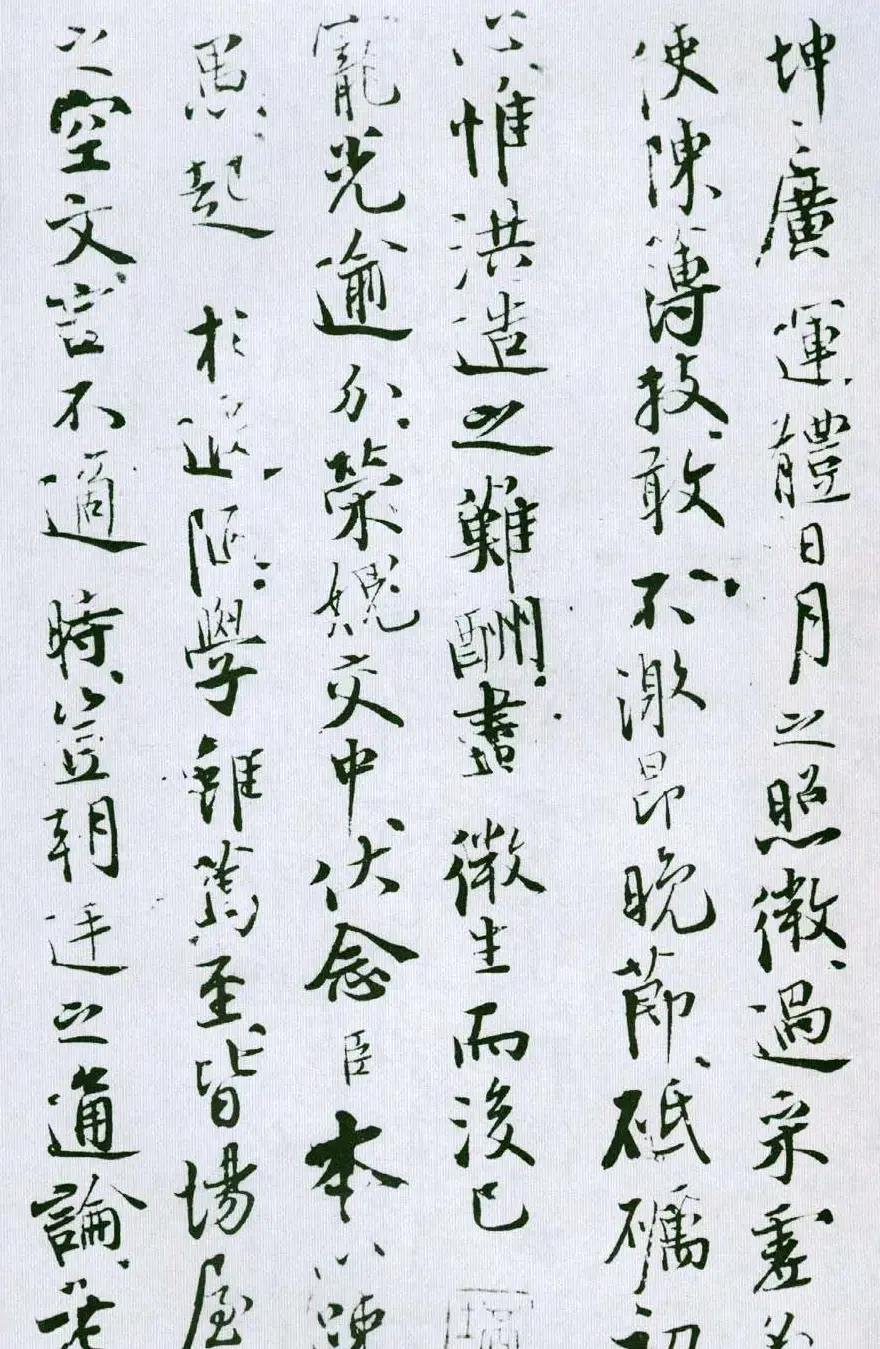 坤之廣運體日月之照微過采虛
使陳薄技敢不激昂晚節砥礪初
心惟洪造之難酬盡微生而後已
寵光逾分榮媿交中伏念臣本以疎
愚起於遐陋學雖篤至皆場屋
之空文言不適時豈朝廷之通論老